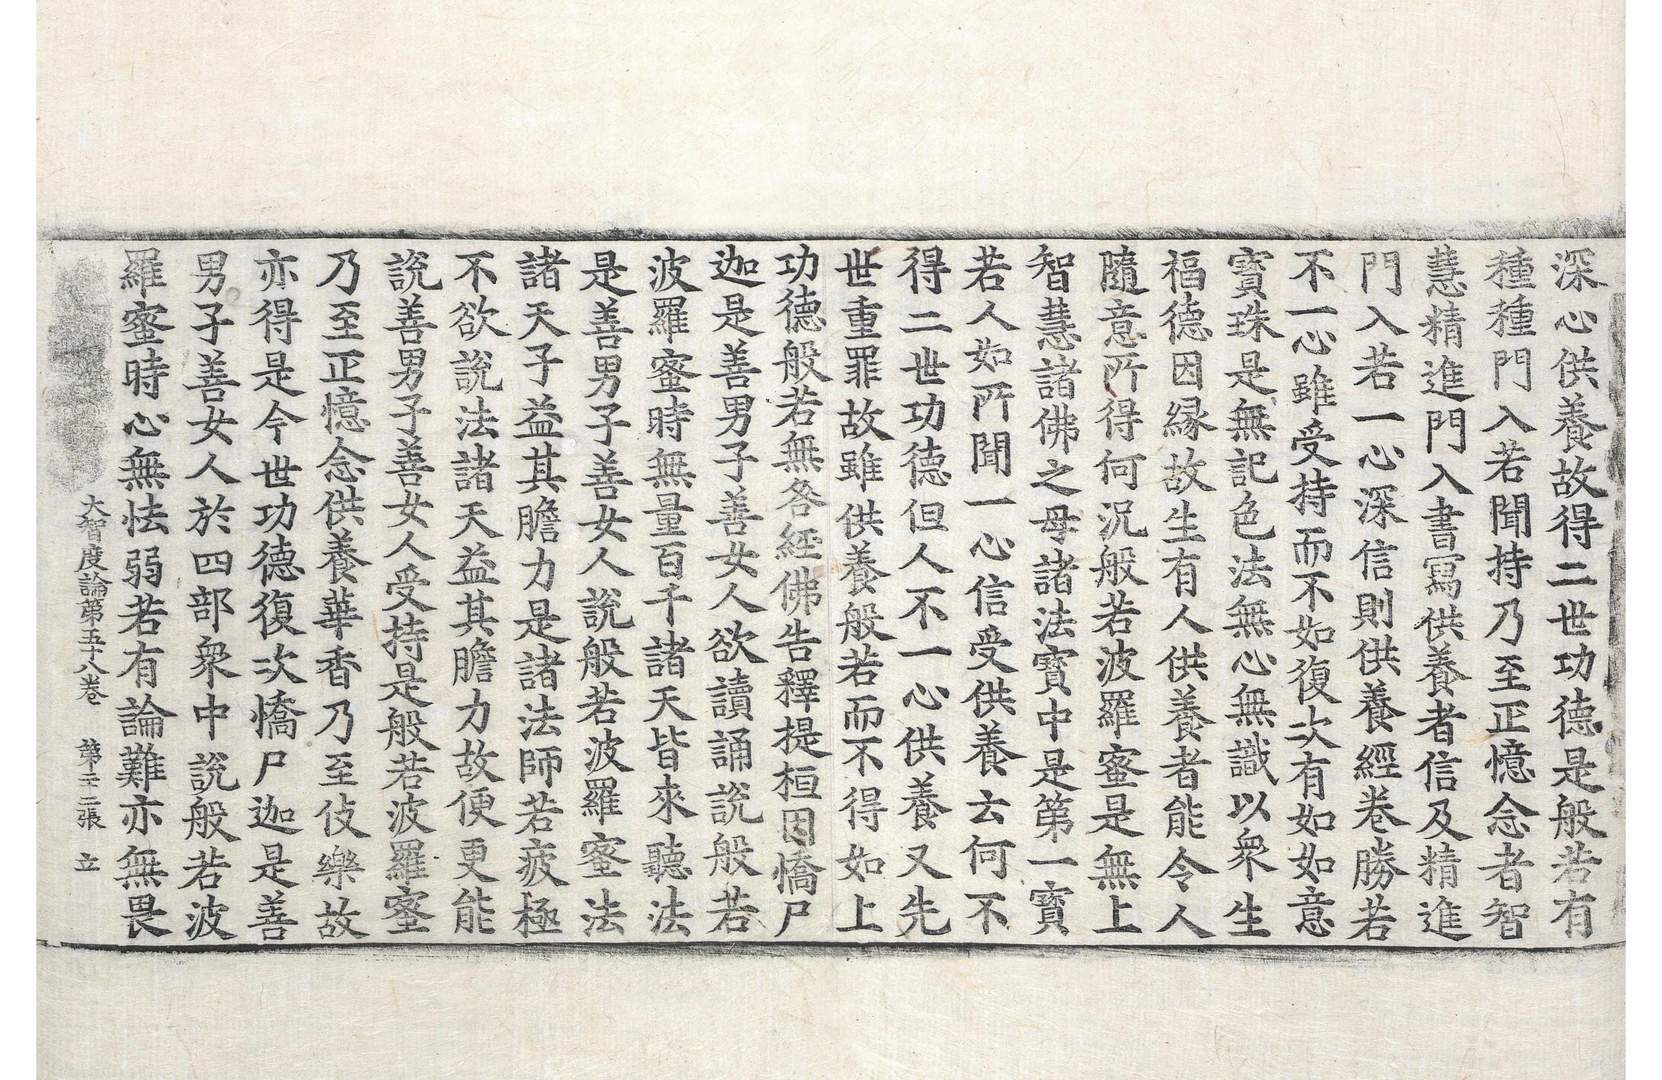 深心供養故得二世功德是般若有
種種門入若聞持乃至正憶念者智
慧精進門入書寫供養者信及精進
門入若一心深信則供養經卷勝若
不一心雖受持而不如復次有如如意
寳珠是無記色法無心無識以衆生
福德因縁故生有人供養者能令人
隨意所得何況般若波羅蜜是無上
智慧諸佛之母諸法寳中是第一寳
若人如所聞一心信受供養云何不
得二世功德但人不一心供養又先
世重罪故雖供養般若而不得如上
功德般若無咎經佛告釋提桓因憍尸
迦是善男子善女人欲讀誦說般若
波羅蜜時無量百千諸天皆來聽法
是善男子善女人說般若波羅蜜法
諸天子益其膽力是諸法師若疲極
不欲說法諸天益其膽力故便更能
說善男子善女人受持是般若波羅蜜
乃至正憶念供養華香乃至伎樂故
亦得是今世功德復次憍尸迦是善
男子善女人於四部衆中說般若波
羅蜜時心無怯弱若有論難亦無畏
大智度論第五十八卷 第二十二張 立